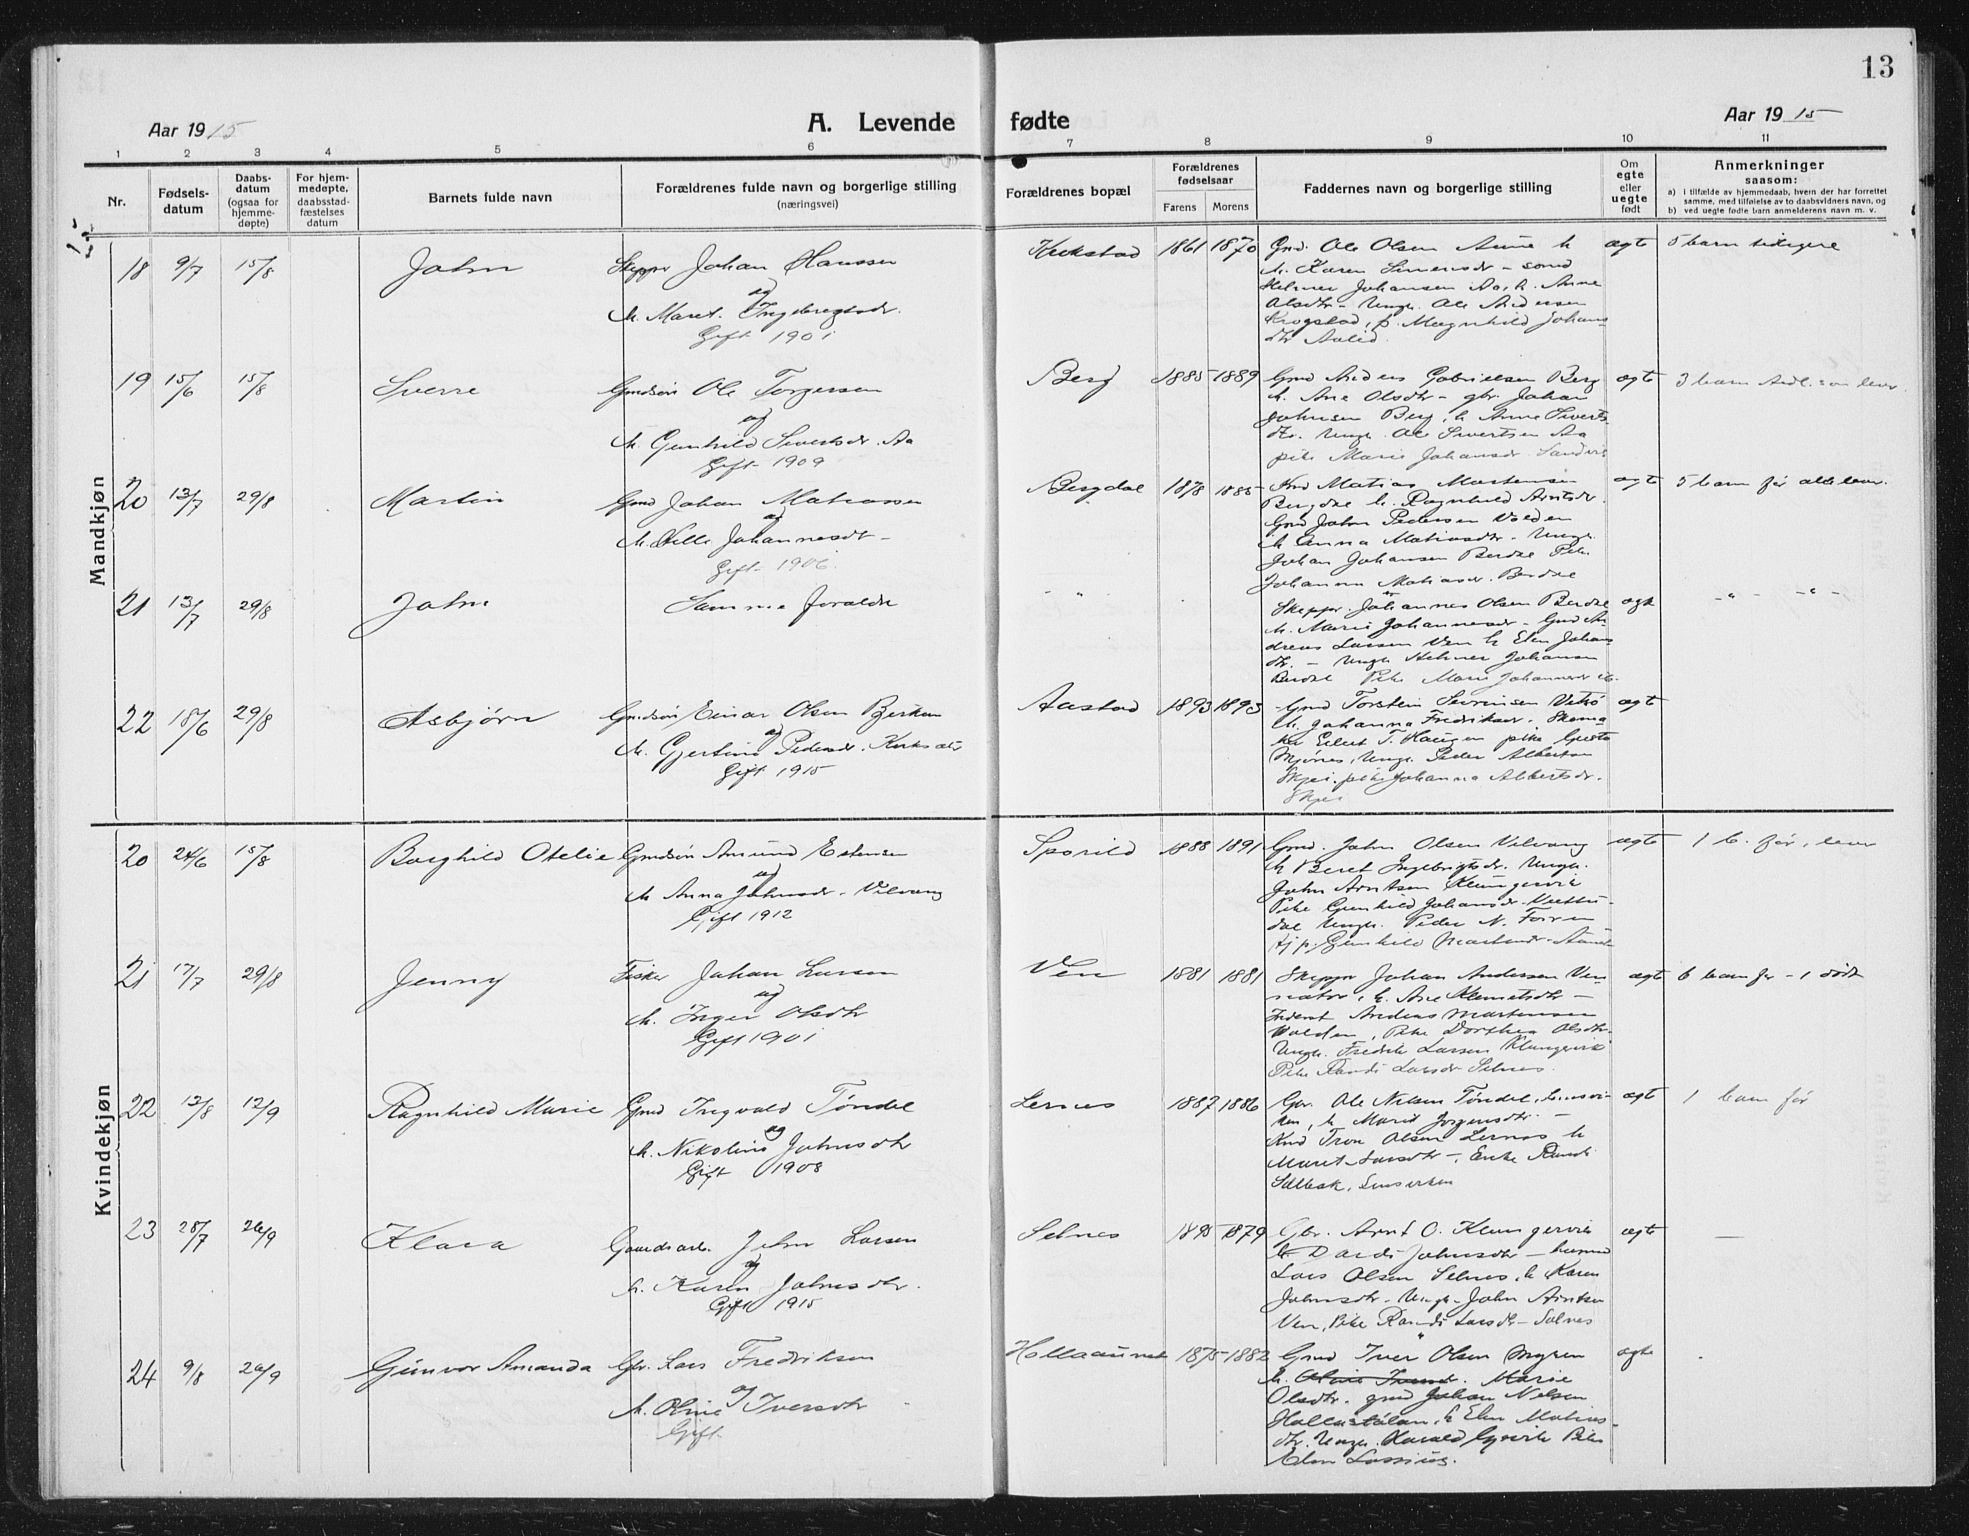 13
Aar 1915
A. Levende fødte
Aar 1915
1 2 3 4 5 6 7 8 9 10 11
Nr.
Fødsels-
datum
Daabs-
datum
(ogsaa for
hjemme-
døpte)
For hjem-
medøpte,
daabsstad-
fæstelses
datum
Barnets fulde navn
Forældrenes fulde navn og borgerlige stilling
(næringsvei)
Forældrenes bopæl
Forældrenes
fødselsaar
Farens Morens
Faddernes navn og borgerlige stilling
Om
egte
eller
uegte
født
Anmerkninger
saasom:
a) i tilfælde av hjemmedaab, hvem der har forrettet
samme, med tilføielse av to daabsvidners navn, og
b) ved uegte fødte barn anmelderens navn m. v.
Mandkjøn
18 9/7 15/8 John
Skippr Johan Hanssen
og
h. Maret Ingebregtsdr.
Gift 1901
1861 1870
Gmd. Ole Olsen Aune h
h. Karen
Helmer Johansen Aa, h. Anne
Olsdtr - Ungk. Ole Andersen
Krogstad, p. Magnhild Johans
dtr
ægte
5 barn tidligere
19 15/6 15/8 Sverre
Gmdsøn Ole Torgersen
og
h. Gunhild Sivertsdr. Aa
Gift 1909
Berg 1885 1889
Gmd Anders Gabrielsen Berg
h. Ane Olsdtr - gbr. Johan
Johnsen Berg, h. Anne Siverts
dtr. Ungk. Ole Sivertsen Aa
pike Marie Johansdr. Sandvik
ægte
3 barn
20 13/7 29/8 Martin
Gmd Johan Matiassen
og
h. Johannesdt -
Gift 1906.
Bergdal 1878 1885
Matias Martensen
h. Ragnhild Arntsdr.
Gmd John Pedersen Volden
h Anna Matiasdtr - Ungk.
Johan Johansen Berdal Pike
Johanna Matiasdr. Berdal
ægte
5 barn før alle lever.
21 13/7 29/8 John
Samme foraldre
- " -
Skippr. Johannes Olsen Berdal
h. Marie Johannesdr - Gmd An-
dreas Larsen Ven h Elen Johans
dtr. - Ungk Helmer Johansen
Berdal Pike Marie Johannesdr
ægte
- " - - " -
22 18/6 29/8 Asbjørn
Gmdsøn Einar Olsen
og
h. Gjertine Pedersdr.
Gift 1915
Aastad 1893 1893
Gmd Torstein Sevrinsen
h. Johanna Fredriksdr. Skoma-
ker Eilert T. Haugen pike
Mjønes, Ungk. Peder Albertsen
Skjei, pike Johanna Albertsdr.
Skjei
ægte
Kvindekjøn
20 24/6 15/8 Borghild Otelie
Gmdsøn Amund Estensen
og
h Anna Johnsdr. Vilvang
Gift 1912
1888 1891
Gmd. John Olsen Vilvang
h Beret Ingebrigtsdr. Ungk.
John Arntsen Klungervik
Pike Gunhild Johansdr.
dal Ungk. Peder N.
tj p. Gunhild
ægte
1 b. før, lever
21 17/7 29/8 Jenny
Fisker Johan Larsen
og
h. Inger Olsdtr
Gift 1901
Ven 1881 1881
Skippr Johan Andersen Ven-
h. Ane Klemetsdtr -
Inderst Andreas Martensen
Volden, Pike Dorthea Olsdtr.
Ungk. Fredrik Larsen Klungervik
Pike Randi Larsdr Selnes.
ægte
6 barn før - 1 dødt
22 12/8 12/9 Ragnhild Marie
Gmd Ingvald Tøndel
og
h. Nikoline Johnsdtr
Gift 1908
Lernes 1887 1886
Gbr. Ole Nilsen Tøndel,
ken, h Marit Jørgensdtr. -
Kmd Tron Olsen Lernes h
Maret Larsdtr -, Enke Randi
ægte
1 barn før
23 28/7 26/9 Klara
Gaardsarb. John Larsen
og
h. Karen Johnsdtr.
Gift 1915
Selnes 1895 1879
Gbr. Arnt O. Klungervik
h Johnsdtr -
Lars Olsen Selnes, h Karen
Johnsdtr. Ungk. John Arntsen
Ven, Pike Randi Larsdtr - Selnes
ægte
-
24 9/8 26/9 Gunvor Amanda
Gbr. Lars Fredriksen
og
h. Oline Iversdtr
Gift
Hollaaunet 1875 1882
Gmd Iver Olsen Myren
h. Marie
Olsdtr. gmd Johan Nelsen
h Elen Matias-
dtr. Ungk. Harald Gjervik Pike
ægte